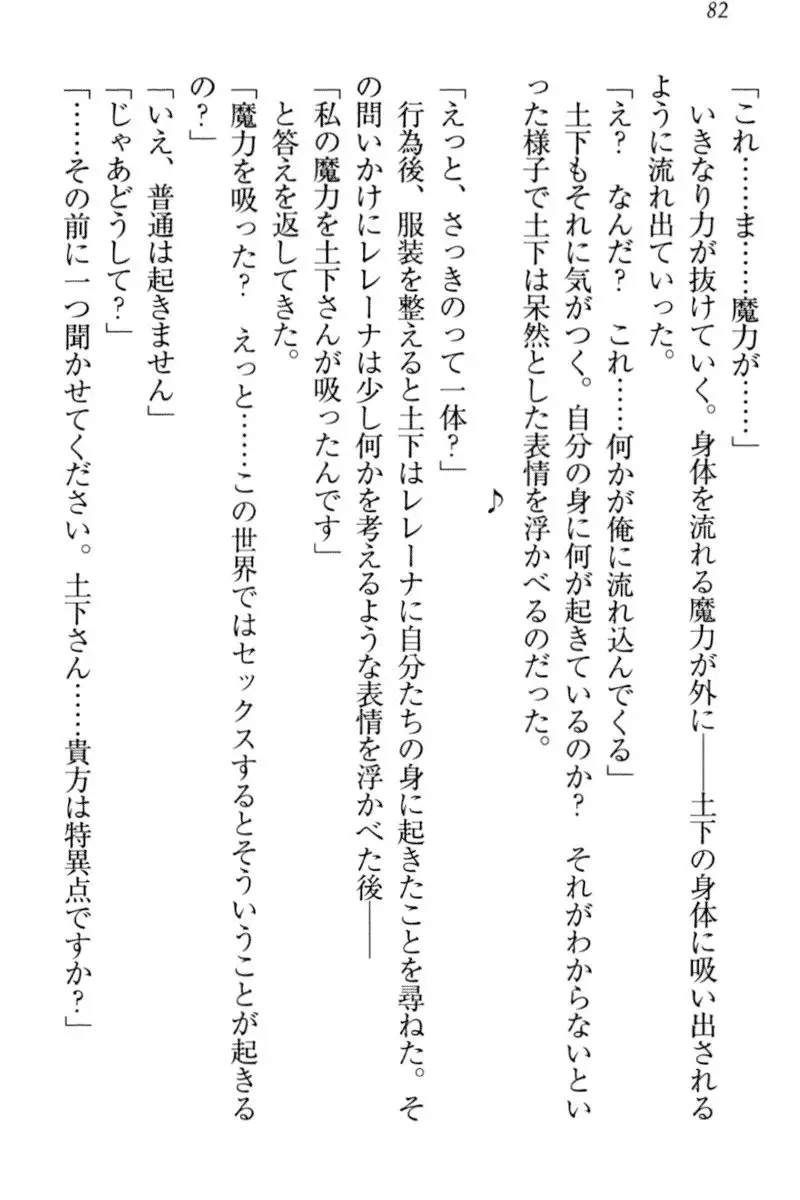 82
「これ……ま……魔力が……」
いきなり力が抜けていく。身体を流れる魔力が外に――土下の身体に吸い出される
ように流れ出ていった。
「え？　なんだ？　これ……何かが俺に流れ込んでくる」
土下もそれに気がつく。自分の身に何が起きているのか？　それがわからないとい
った様子で土下は呆然とした表情を浮かべるのだった。
♪
「えっと、さっきのって一体？」
行為後、服装を整えると土下はレレーナに自分たちの身に起きたことを尋ねた。そ
の問いかけにレレーナは少し何かを考えるような表情を浮かべた後――
「私の魔力を土下さんが吸ったんです」
と答えを返してきた。
「魔力を吸った？　えっと……この世界ではセックスするとそういうことが起きる
の？」
「いえ、普通は起きません」
「じゃあどうして？」
「……その前に一つ聞かせてください。土下さん……貴方は特異点ですか？」